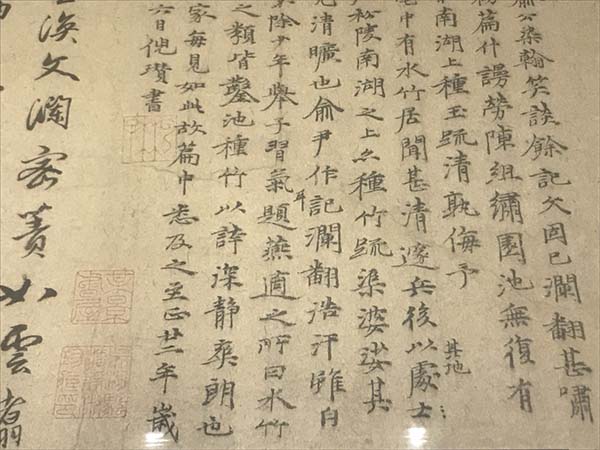 公染翰笑談餘記文因已瀾翻甚嘯
篇什謾勞陳組繡園池無復有
南湖上種玉疏清孰侮予
中有水竹居聞甚清邃兵後以處士
其地
松陵南湖之上亦種竹疏渠婆娑其
見清曠也俞尹作記瀾翻浩汗雖自
耳
除少年舉子習氣題燕適之所曰水竹
之類皆鑿池種竹以誇深靜爽朗也
家每見如此故篇中悉及之至正廿二年歲
六日倪瓚書
渙文瀾密 雲